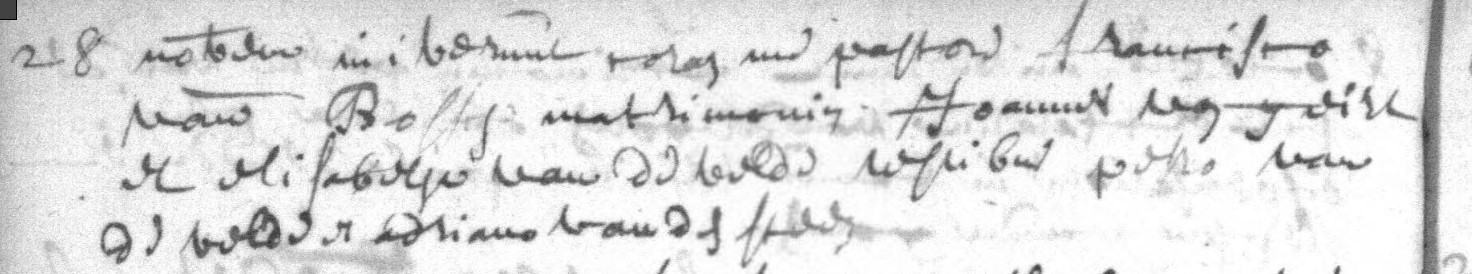 28 nobem iniverunt coram me pastore francisco
van Bossch matrimoniu Joannes
et elisabetha van de velde testibus petro van
de velde et adriano vander steen